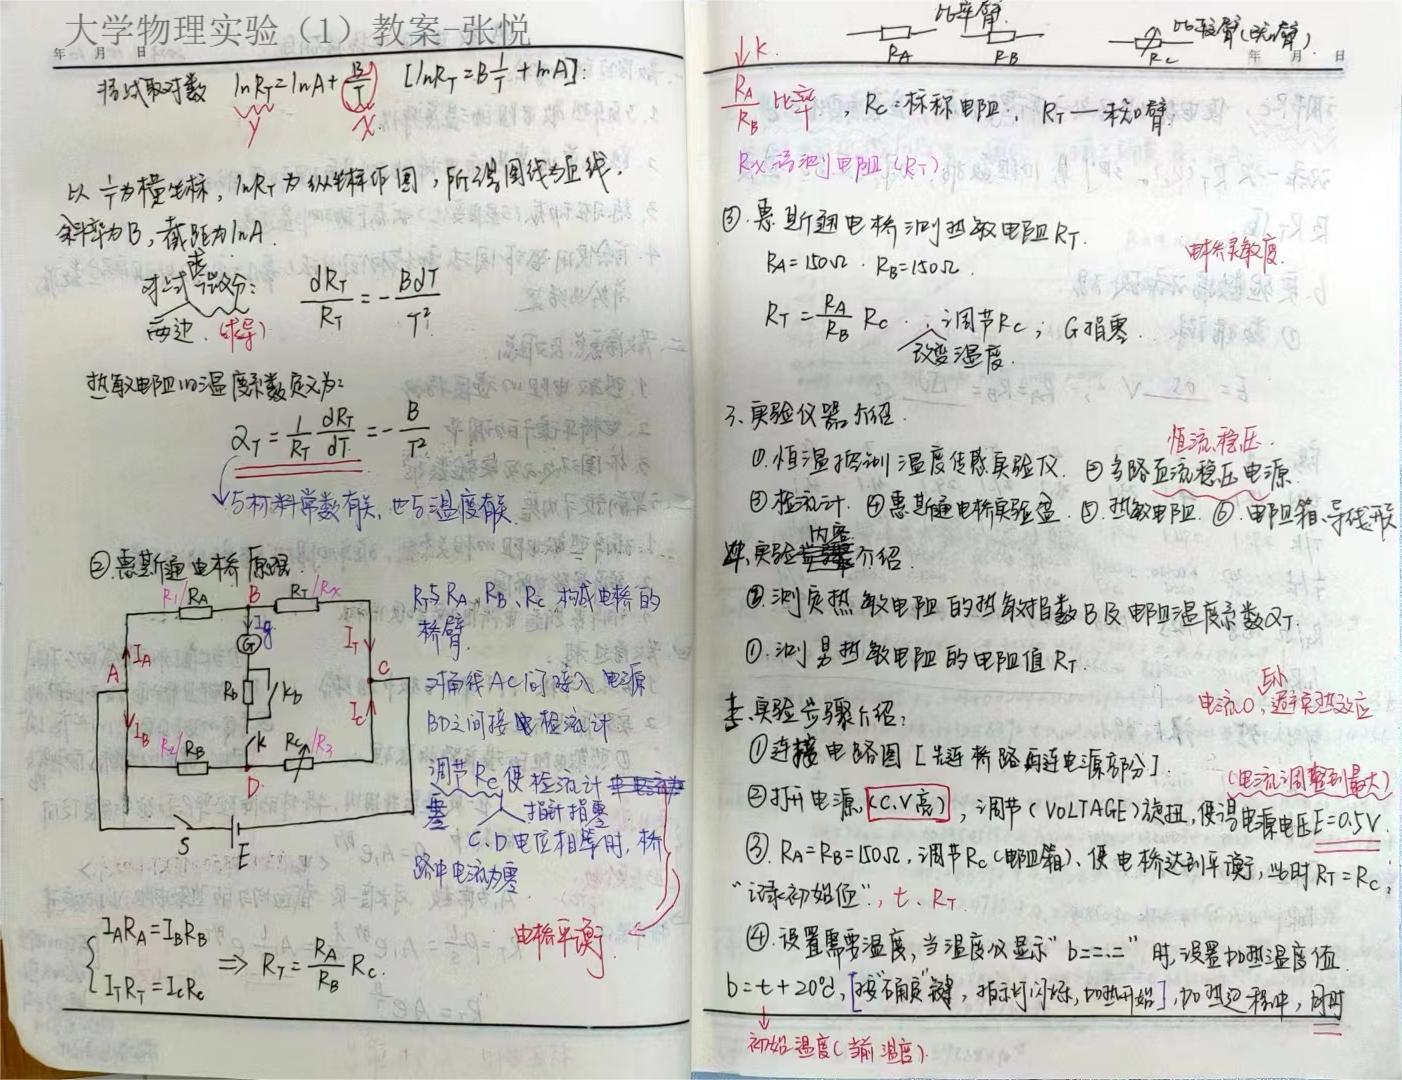 大学物理实验（1）教案 张悦
年 月 日
将式取对数 lnR_T=lnA+B/T [lnR_T=B1/T+lnA]:
y x
以1/T为横坐标，lnR_T为纵坐标作图，所得图线为直线，
斜率为B，截距为lnA.
对式求微分： dR_T/R_T=-BdT/T²
两边(求导)
热敏电阻的温度系数定义为：
α_T=1/R_T dR_T/dT=-B/T²
与材料常数有关，也与温度有关.
②惠斯通电桥原理
R1/RA B RT/Rx
Ig
G
IA IT
A C
Rb Kb
IB Ic
R2/RB K Rc/R3
D
S E
R_T与R_A、R_B、R_C构成电桥的
桥臂.
对角线AC间接入电源
BD之间接检流计
调节Rc使检流计
指针指零
C.D电位相等时，桥
路中电流为零
电桥平衡
I_AR_A=I_BR_B
I_TR_T=I_CR_C
⇒ R_T=R_A/R_B R_C.
比率臂.
RA RB Rc
年 月 日
K
R_A/R_B 比率，R_C=标称电阻，R_T—
Rx待测电阻(R_T)
③.惠斯通电桥测热敏电阻R_T.
R_A=150Ω. R_B=150Ω.
电桥灵敏度.
R_T=R_A/R_B R_C. 调节R_C；G指零.
改变温度.
3.实验仪器介绍.
恒流稳压.
①.恒温控制温度传感实验仪. ②多路直流稳压电源.
③检流计. ④惠斯通电桥实验盒. ⑤.热敏电阻. ⑥.电阻箱、导线、开关
4.实验内容介绍.
②.测定热敏电阻的热敏指数B及电阻温度系数α_T.
①.测量热敏电阻的电阻值R_T.
五.实验步骤介绍：
①连接电路图[先连桥路再连电源部分].
(电流调整到最大)
②打开电源，(C.V亮)，调节(VOLTAGE)旋扭，使得电源电压E=0.5V.
③.R_A=R_B=150Ω，调节R_C(电阻箱)、使电桥达到平衡，当时R_T=R_C；
“记录初始值”，t、R_T.
④.设置需要温度，当温度仪显示“b==.=”时，设置加热温度值.
b=t+20℃，[按“确定”键，指示灯闪烁，加热开始]，加热过程中，同时
初始温度(当前温度).